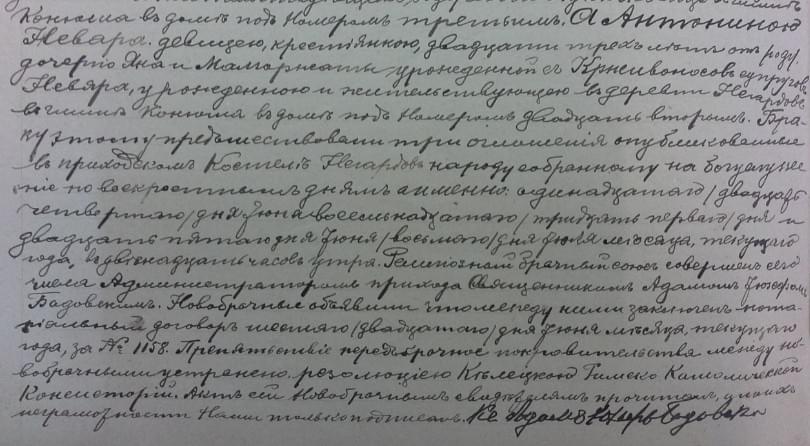 Конюша въ домѣ подъ номеромъ третьимъ. А Антониною
Невяра, дѣвицею, крестіянкою, двадцати трехъ лѣтъ отъ роду,
дочерію Яна и Малгоржаты урожденной съ Крживоносовъ супруговъ
Невяра, урожденною и жительствующею въ деревни Негардовѣ
въ гминѣ Конюша въ домѣ подъ номеромъ двадцать вторымъ. Бра-
ку этому предшествовали три оглашенія опубликованные
въ приходскомъ Костелѣ Негардовъ народу собранному на богослуже
ніе по воскреснымъ днямъ а именно: одинадцатаго /двадцать
четвертаго/ дня Іюня восемьнадцатаго /тридцать перваго/ дня и
двадцать пятаго дня Іюня /восьмаго/ дня Іюля мѣсяца, текущаго
года, въ двѣнадцать часовъ утра. Религіозный брачный союзъ совершенъ сего
числа Администраторомъ прихода Священникомъ Адамомъ Іюзефомъ
Бадовскимъ. Новобрачные объявили что между ними заключенъ нота-
ріальный договоръ шестаго /двадцатаго/ дня Іюня мѣсяца, текущаго
года, за № 1158. Препятствіе передъ брачное покровительства между но-
вобрачными устранено резолюціею Кѣлецкой Римско Католической
Консисторіи. Актъ сей Новобрачнымъ свидѣтелямъ прочитанъ, у нихъ
неграмотности Нами только подписанъ. Кс. Адамъ Бадовски